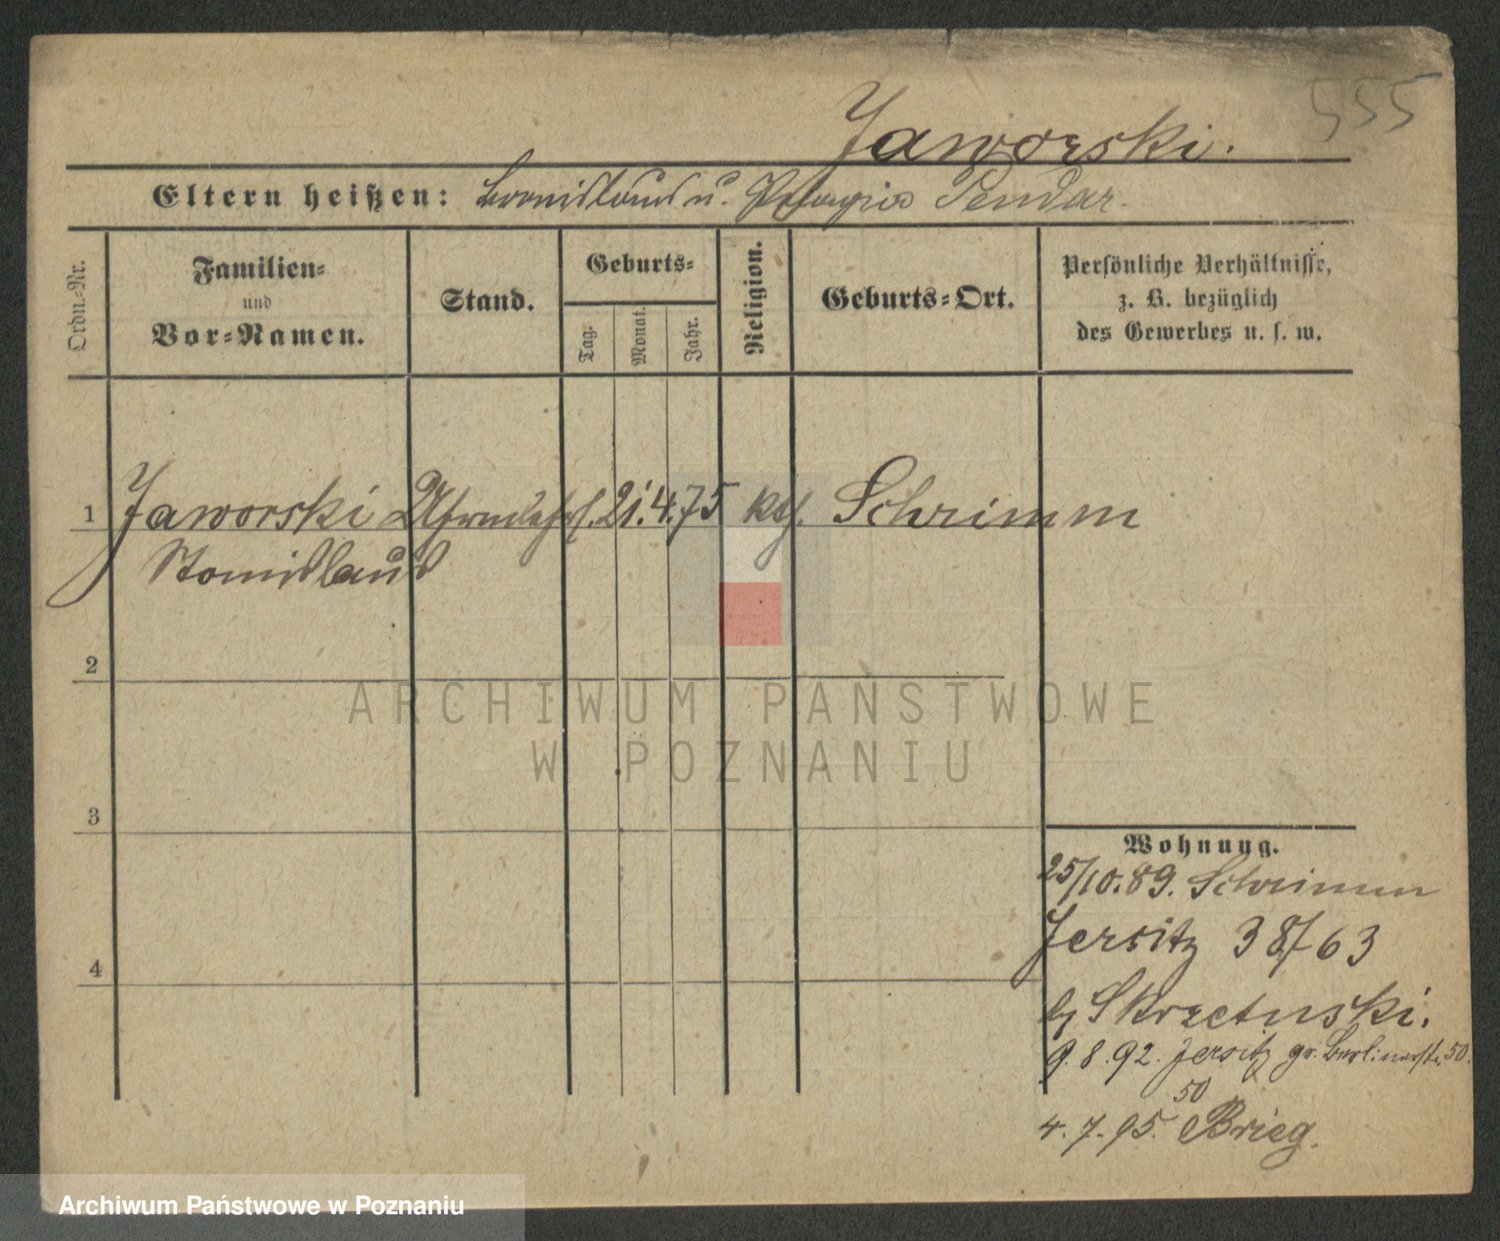 555
Jaworski.
Eltern heißen: Bronislaus u. Pelagia Pendar.
Ordn.-Nr.
Familien-
und
Vor-Namen.
Stand.
Geburts-
Tag.
Monat.
Jahr.
Religion.
Geburts-Ort.
Persönliche Verhältnisse,
z. B. bezüglich
des Gewerbes u. s. w.
1 Jaworski 21. 4. 75 kth. Schrimm
Stanislaus
2
ARCHIWUM PAŃSTWOWE
W POZNANIU
3
Wohnung.
25/10.89. Schrimm
Jersitz 38/63
4
b/ Skrzetuski.
9. 8. 92. Jersitz gr. Berlinerstr. 50.
50
4. 7. 95. Brieg.
Archiwum Państwowe w Poznaniu